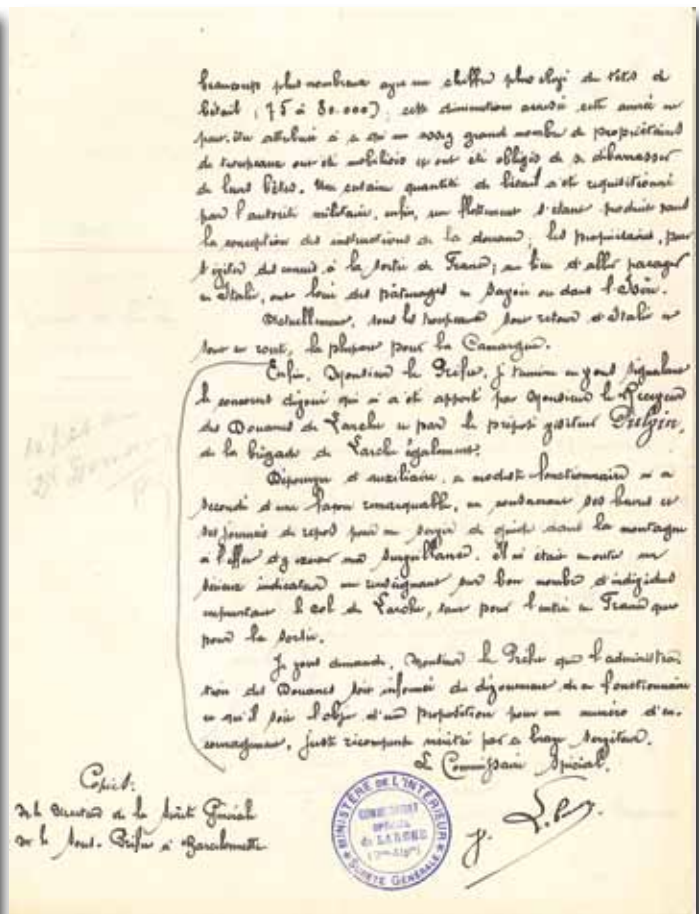 beaucoup plus nombreux avec un chiffre plus élevé de têtes de
bétail (75 à 80.000); cette diminution accusée cette année ne
peut être attribuée qu'à ce qu'un assez grand nombre de propriétaires
de troupeaux ont été mobilisés et ont été obligés de se débarrasser
de leurs bêtes. Une certaine quantité de bétail a été réquisitionné
par l'autorité militaire, enfin, un flottement s'étant produit dans
la conception des instructions de la douane, les propriétaires, pour
s'éviter des ennuis à la sortie de France, au lieu d'aller pacager
en Italie, ont loué des pâturages en Savoie ou dans l'Isère.
Actuellement, tous les troupeaux sont retour d'Italie et
sont en route, la plupart pour la Camargue.
Enfin, Monsieur le Préfet, j'tiens à vous signaler
le concours dévoué qui m'a été apporté par Monsieur le Receveur
des Douanes de Larche et par le préposé visiteur
de la brigade de Larche également.
Dépourvu d'auxiliaire, ce modeste fonctionnaire m'a
secondé d'une façon remarquable, en consacrant ses heures et
ses journées de repos pour un service de dans la montagne
à l'effet d'y exercer ma surveillance. Il m'était en outre un
sérieux indicateur me renseignant sur bon nombre d'individus
empruntant le col de Larche, tant pour l'entrée en France que
pour la sortie.
Je vous demande, Monsieur le Préfet que l'administra-
tion des Douanes soit informée du dévouement de ce fonctionnaire
et qu'il soit l'objet d'une proposition pour un numéro d'en-
couragement, juste récompense méritée par ce brave serviteur.
Le Commissaire Spécial,
Copies:
de le Directeur de la Sûreté Générale
de le Sous-Préfet à Barcelonnette
MINISTÈRE DE L'INTÉRIEUR
COMMISSARIAT
SPÉCIAL
de LARCHE
SURETÉ GÉNÉRALE